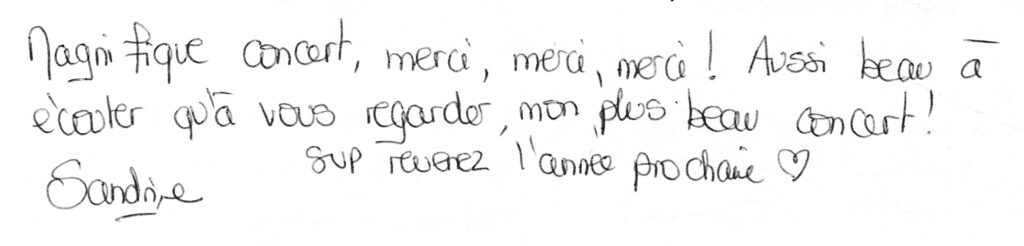 Magnifique concert, merci, merci, merci ! Aussi beau à
écouter qu'à vous regarder, mon plus beau concert !
SVP revenez l'année prochaine ♡
Sandrine